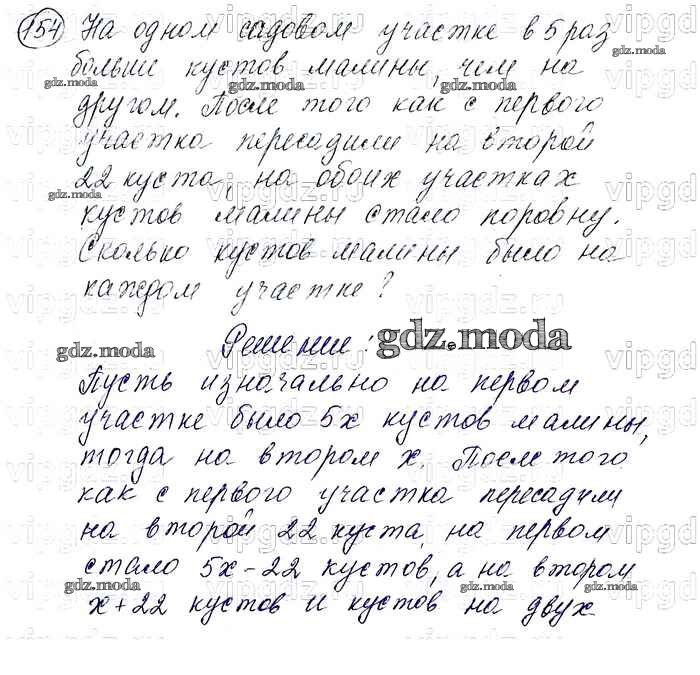 154 На одном садовом участке в 5 раз
больше кустов малины, чем на
другом. После того как с первого
участка пересадили на второй
22 куста, на обоих участках
кустов малины стало поровну.
Сколько кустов малины было на
каждом участке?
Решение:
gdz.moda
Пусть изначально на первом
участке было 5x кустов малины,
тогда на втором x. После того
как с первого участка пересадили
на второй 22 куста, на первом
стало 5x-22 кустов, а на втором
x+22 кустов и кустов на двух